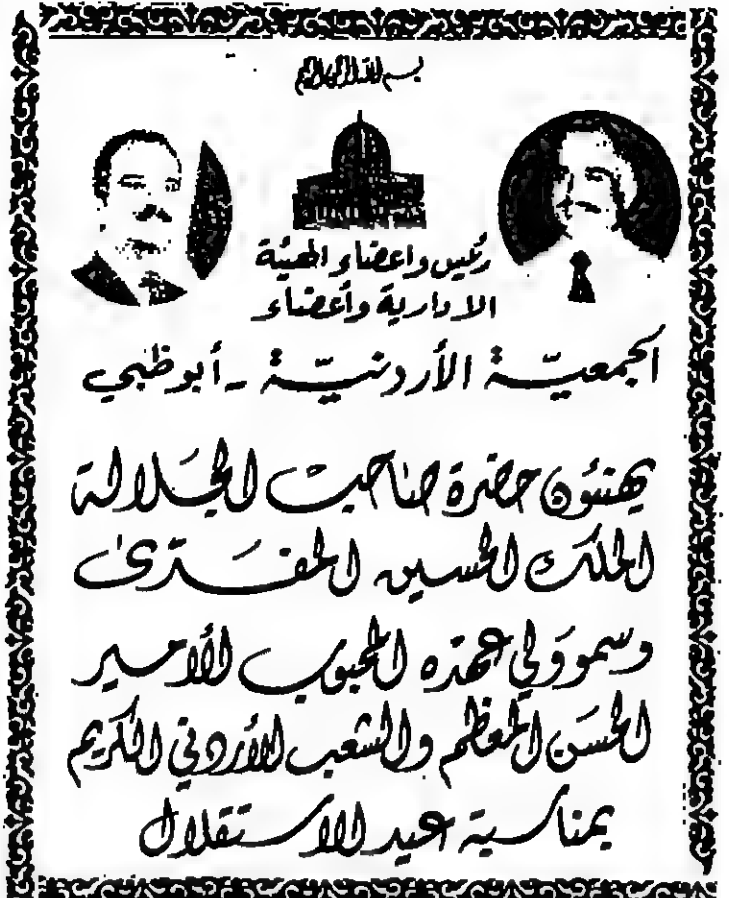 بسم الله الرحمن الرحيم
رئيس واعضاء الهيئة
الادارية وأعضاء
الجمعيّة الأردنيّة - أبوظبي
يهنئون حضرة صاحب الجلالة
الملك الحسين المفدّى
وسمو ولي عهده المحبوب الأمير
الحسن المعظم والشعب الأردني الكريم
بمناسبة عيد الاستقلال